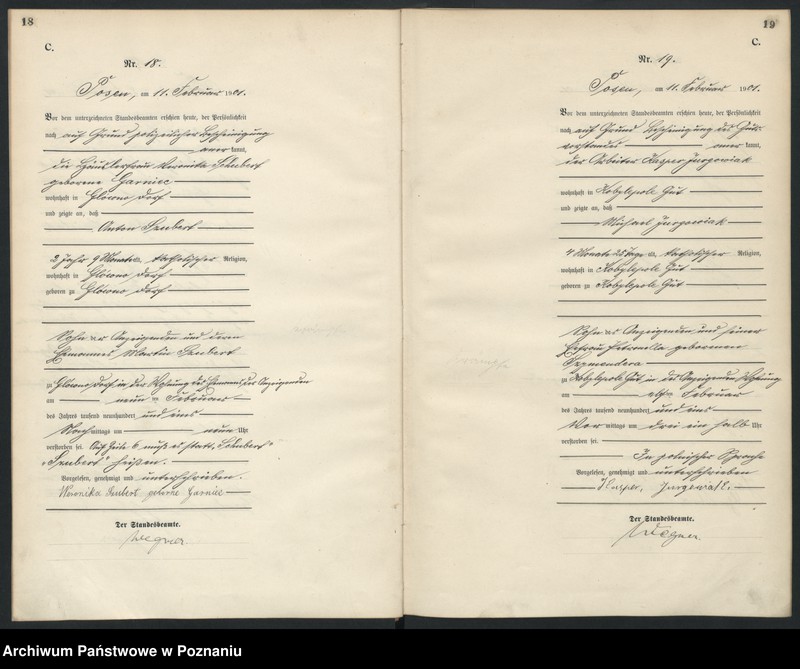 18
C.
Nr. 18.
Posen, am 11. Februar 1901.
Vor dem unterzeichneten Standesbeamten erschien heute, der Persönlichkeit
nach auf Grund polizeilicher Bescheinigung
anerkannt,
die Häuslerfrau Veronika Schubert
geborene Garniec
wohnhaft in Glowno Dorf
und zeigte an, daß
Anton Szubert
2 Jahr 9 Monate alt, katholischer Religion,
wohnhaft in Glowno Dorf
geboren zu Glowno Dorf
Sohn der Anzeigenden und deren
Ehemannes Martin Szubert
zu Glowno Dorf in der Wohnung des Ehemanns der Anzeigenden
am neunten Februar
des Jahres tausend neunhundert und eins
Nachmittags um neun Uhr
verstorben sei. Auf Zeile 6 muß es statt „Schubert"
„Szubert" heißen.
Vorgelesen, genehmigt und unterschrieben.
Weronika Szubert geborne Garniec
Der Standesbeamte.
Wegner
19
C.
Nr. 19.
Posen, am 11. Februar 1901.
Vor dem unterzeichneten Standesbeamten erschien heute, der Persönlichkeit
nach auf Grund Bescheinigung des Guts-
vorstandes anerkannt,
der Arbeiter Kasper
wohnhaft in Kobylepole Gut
und zeigte an, daß
Michael
4 Monate 25 Tage alt, katholischer Religion,
wohnhaft in Kobylepole Gut
geboren zu Kobylepole Gut
Sohn des Anzeigenden und seiner
Ehefrau Petronella geborenen
zu Kobylepole Gut in des Anzeigenden Wohnung
am elften Februar
des Jahres tausend neunhundert und eins
Vormittags um drei ein halb Uhr
verstorben sei.
In polnischer Sprache
Vorgelesen, genehmigt und unterschrieben
Kasper,
Der Standesbeamte.
Wegner
Archiwum Państwowe w Poznaniu